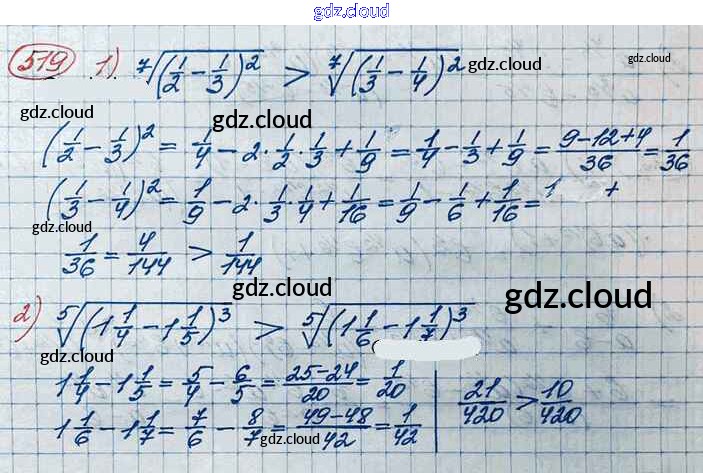 gdz.cloud
519 1) ⁷√(1/2 − 1/3)² > ⁷√(1/3 − 1/4)² gdz.cloud gdz.cloud
gdz.cloud gdz.cloud
(1/2 − 1/3)² = 1/4 − 2 · 1/2 · 1/3 + 1/9 = 1/4 − 1/3 + 1/9 = (9−12+4)/36 = 1/36
(1/3 − 1/4)² = 1/9 − 2 · 1/3 · 1/4 + 1/16 = 1/9 − 1/6 + 1/16 = 1 +
gdz.cloud gdz.cloud
1/36 = 4/144 > 1/144
gdz.cloud gdz.cloud
2) ⁵√(1 1/4 − 1 1/5)³ > ⁵√(1 1/6 − 1 1/7)³
gdz.cloud gdz.cloud
1 1/4 − 1 1/5 = 5/4 − 6/5 = (25−24)/20 = 1/20
21/420 > 10/420
1 1/6 − 1 1/7 = 7/6 − 8/7 = (49−48)/42 = 1/42
gdz.cloud gdz.cloud